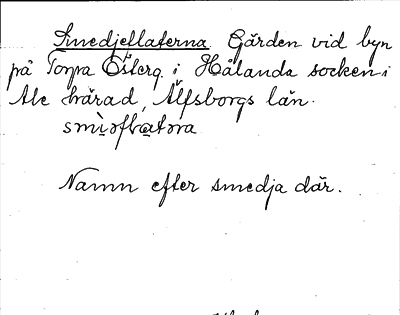 Smedjeflaterna Gärden vid byn
på Torpa Österg. i Hålanda socken i
Ale härad, Älfsborgs län.
smìəflatəra
Namn efter smedja där.